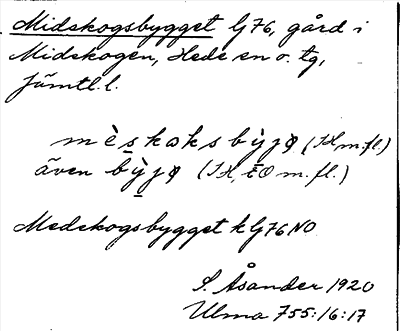 Midskogsbygget G76, gård i
Midskogen, Hede sn o. tg,
Jämtl.l.
mèskoksbỳjọ (JH m.fl.)
även bỳjọ (JH, EO m.fl.)
Medskogsbygget k G76NO
S. Åsander 1920
Ulma 755:16:17